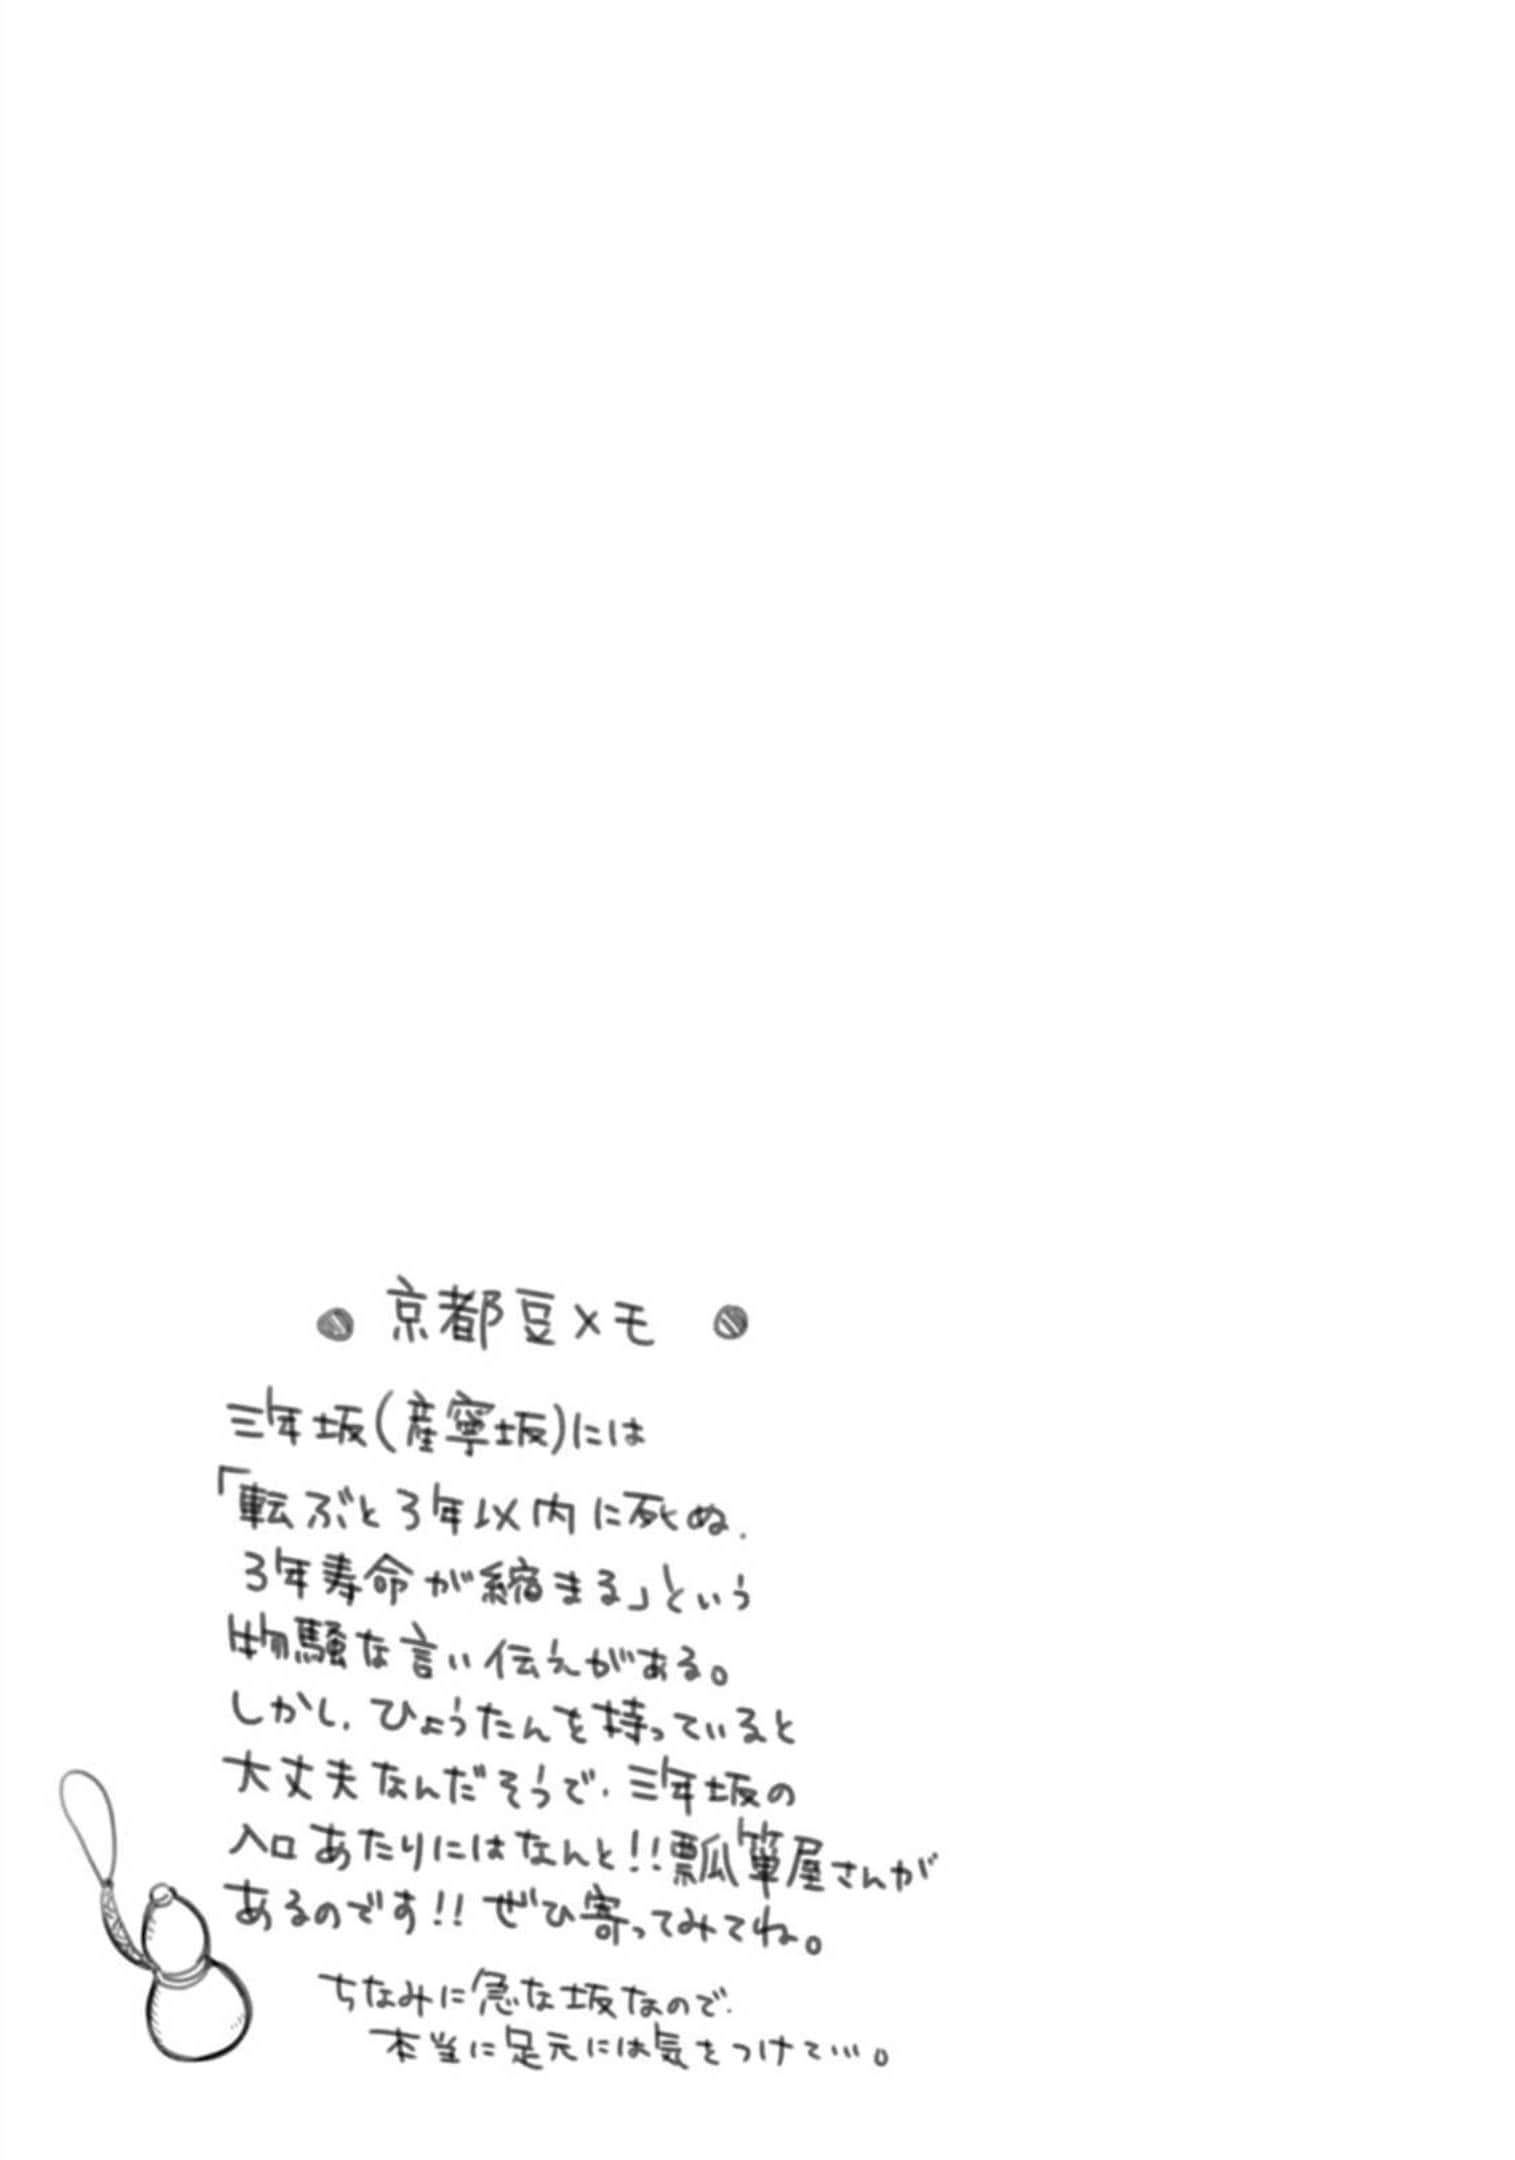 京都豆メモ
三年坂(産寧坂)には
「転ぶと3年以内に死ぬ、
3年寿命が縮まる」という
物騒な言い伝えがある。
しかし、ひょうたんを持っていると
大丈夫なんだそうで、三年坂の
入口あたりにはなんと!!瓢箪屋さんが
あるのです!!ぜひ寄ってみてね。
ちなみに急な坂なので、
本当に足元には気をつけて…。